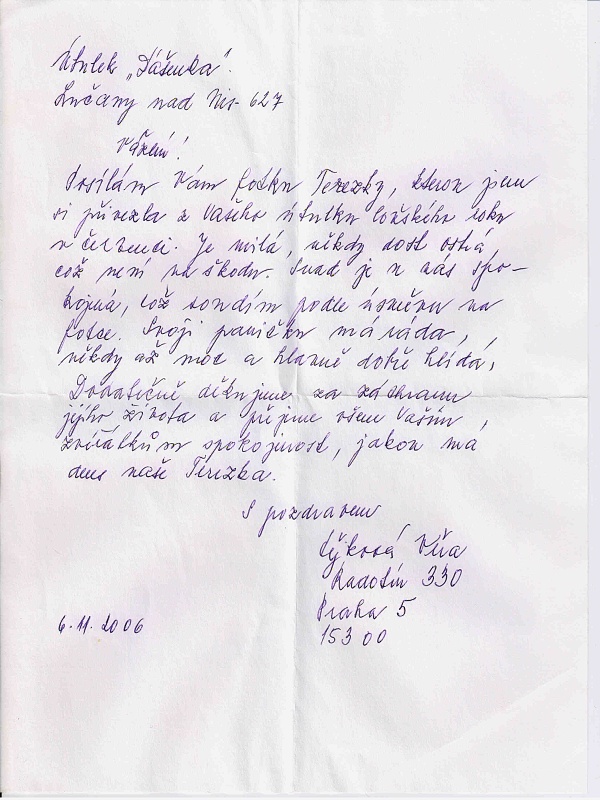 Útulek „Dášenka".
Lučany nad Nis. 627
Vážení!
Posílám Vám fotku Terezky, kterou jsem
si přivezla z Vašeho útulku loňského roku
v červenci. Je milá, někdy dost ostrá
což není na škodu. Snad je u nás spo-
kojná, což soudím podle úsměvu na
fotce. Svoji paničku má ráda,
někdy až moc a hlavně dobře hlídá,
Dodatečně děkujeme za záchranu
jejího života a přejeme všem Vašim,
zvířátkům spokojenost, jakou má
dnes naše Terezka.
S pozdravem
Věra
Radotín 330
Praha 5
153 00
6.11.2006